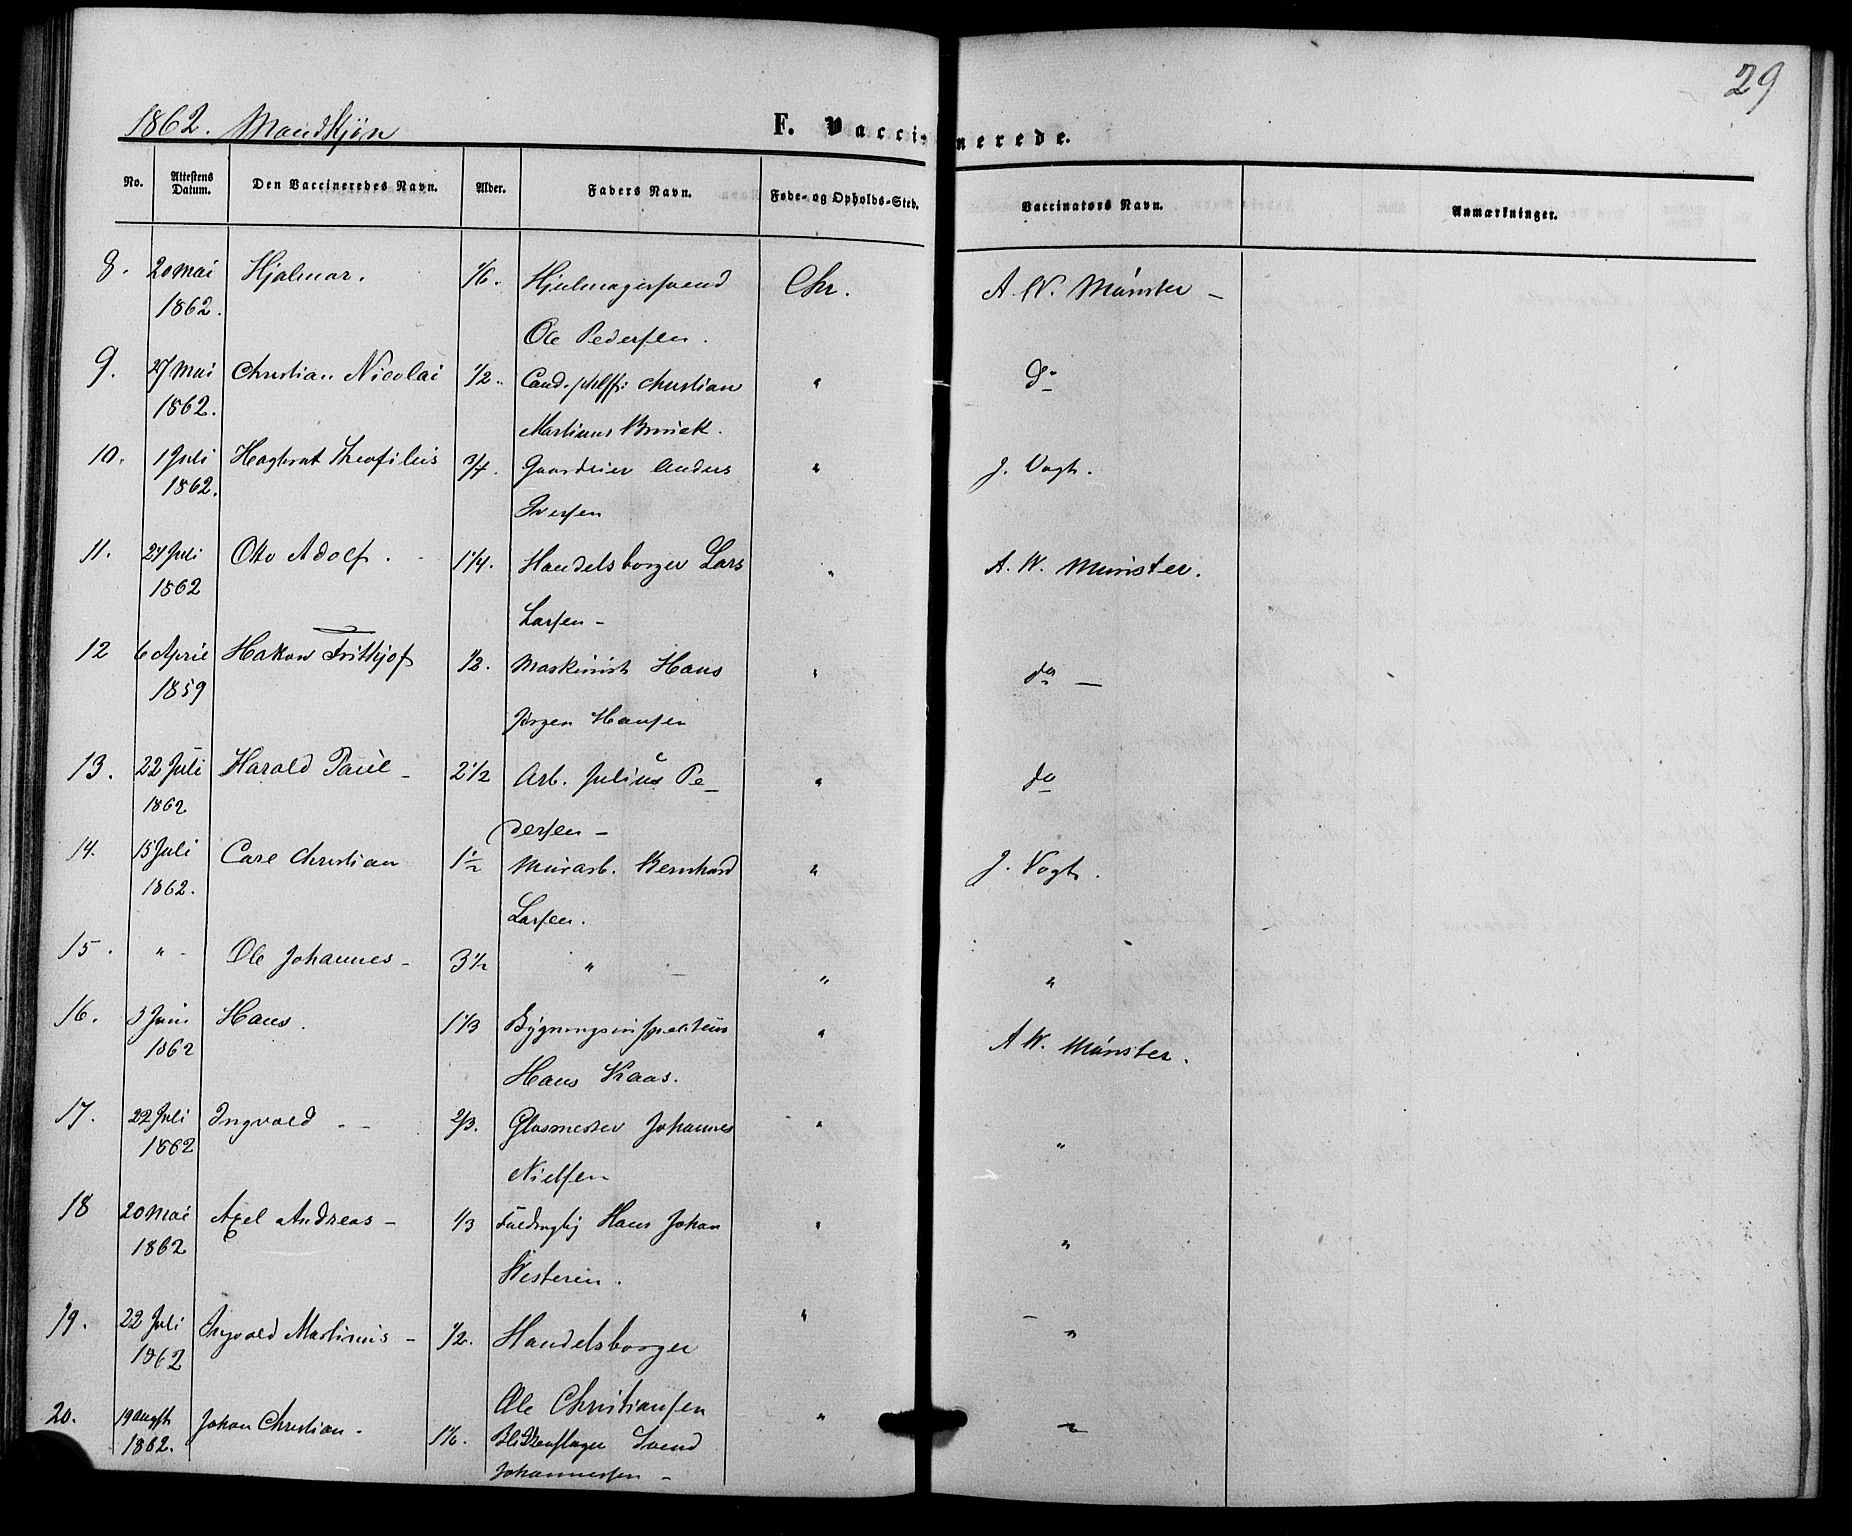 29
1862. Mandkjøn
F. Vaccinerede.
No. Attestens Datum. Den Vaccineredes Navn. Alder. Faders Navn. Føde- og Opholds-Sted. Vaccinators Navn. Anmærkninger.
8. 20 Mai Hjalmar. 1/6. Hjulmagersvend Chr. A W. Münster -
1862. Ole Pedersen.
9. 27 Mai Christian Nicolai 1/2. Cand. Christian " do
1862. Martinus
10. 1 Juli Theofilus 3/4. Gaardeier Anders " J. Vogt.
1862. Iversen
11. 24 Juli Otto Adolf. 1 1/4. Handelsborger Lars " A. W. Münster.
1862 Larsen -
12 6 April Hakon Frithjof 1/2. Maskinist Hans " do -
1859 Jørgen Hansen
13. 22 Juli Harald Paul - 2 1/2 Arb. Julius Pe- " do
1862 dersen -
14. 15 Juli Carl Christian 1 1/2 Murarb. Bernhard " J. Vogt.
1862. Larsen.
15. " - Ole Johannes - 3 1/2 " - " "
16. 3 Juni Hans. 1 1/3 Bygningsinspecteur " A W. Münster.
1862 Hans Kaas.
17. 22 Juli Ingvald - - 2/3. Glasmester Johannes " "
1862 Nielsen
18 20 Mai Axel Andreas - 1/3 Hans Johan " "
1862 Westerin.
19. 22 Juli Ingvald Martinus - 1/2. Handelsborger " - "
1862 Ole Christiansen
20. 19 Augst Johan Christian. 1 1/6. Blikkenslager Svend " "
1862. Johannessen -